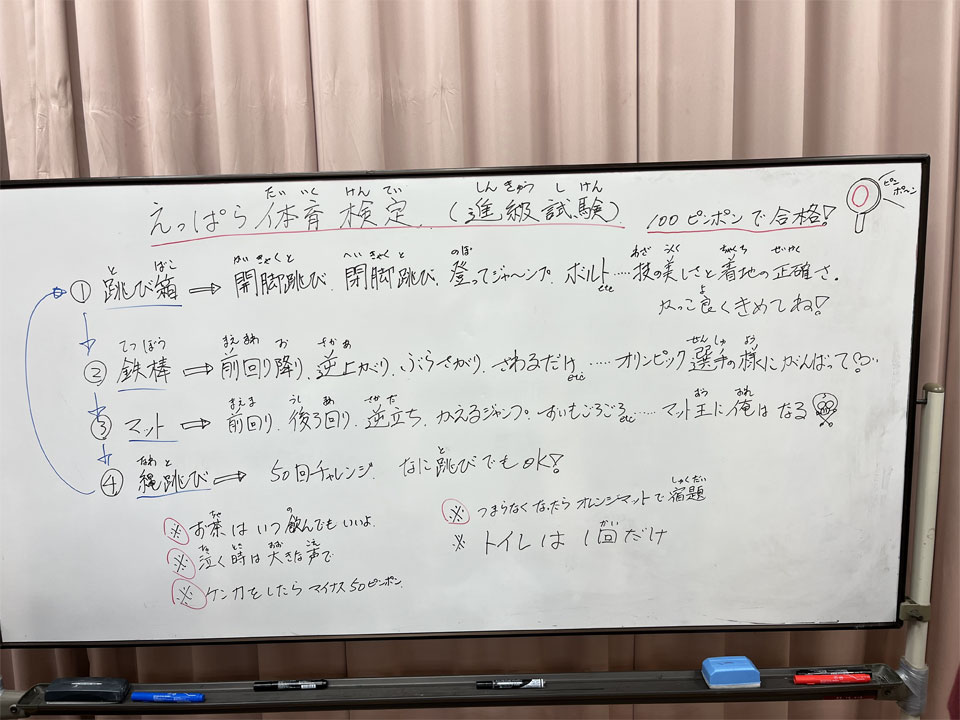 えっぱら体育検定 (進級試験) 100ピンポンで合格! ピンポ〜ン
① 跳び箱 ⇒ 開脚跳び、閉脚跳び、登ってジャ〜ンプ、ボルト……etc 技の美しさと着地の正確さ。
カっこ良くきめてね!
② 鉄棒 ⇒ 前回り降り、逆上がり、ぶらさがり、さわるだけ……etc オリンピック選手の様にがんばって!
③ マット ⇒ 前回り、後ろ回り、逆立ち、かえるジャンプ、すいもごろごろetc…… マット王に俺はなる
④ 縄跳び ⇒ 50回チャレンジ、なに跳びでもOK!
※ お茶はいつ飲んでもいいよ。
※ 泣く時は大きな声で
※ ケンカをしたらマイナス50ピンポン。
※ つまらなくなったらオレンジマットで宿題
※ トイレは1回だけ